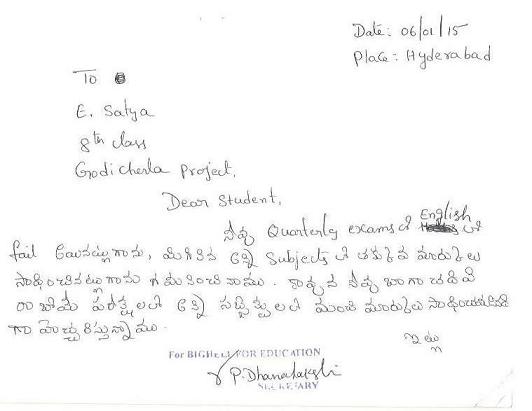 Date: 06/01/15
Place: Hyderabad
To
E. Satya
8th class
Godicherla Project,
Dear Student,
నీవు Quarterly exams లో English లో
fail అయినట్లుగాను, మిగిలిన అన్ని Subjects లో తక్కువ మార్కులు
సాధించినట్లుగాను గమనించినాము. కావున నీవు బాగా చదివి
రాబోయే పరీక్షలలో అన్ని సబ్జెక్ట్లలో మంచి మార్కులు
గా హెచ్చరిస్తున్నాము.
ఇట్లు
For BIGHELP FOR EDUCATION
P. Dhanalakshi
SECRETARY